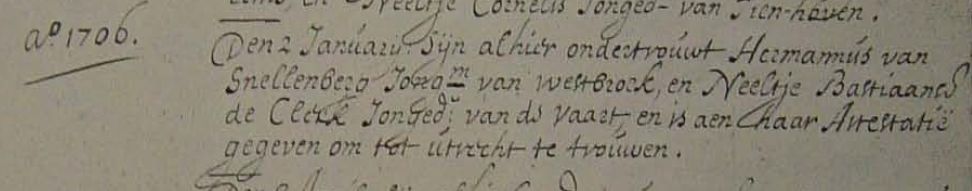 en Neeltje Cornelis Jonged- van Tien-hoven.
aº 1706.
Den 2 Januarij Sijn alhier ondertrouwt Hermannus van
Snellenberg Jongm van Westbroek, en Neeltje Bastiaans
de Clerk Jonged: van de Vaart, en is aen haar Attestatie
gegeven om tot utrecht te trouwen.